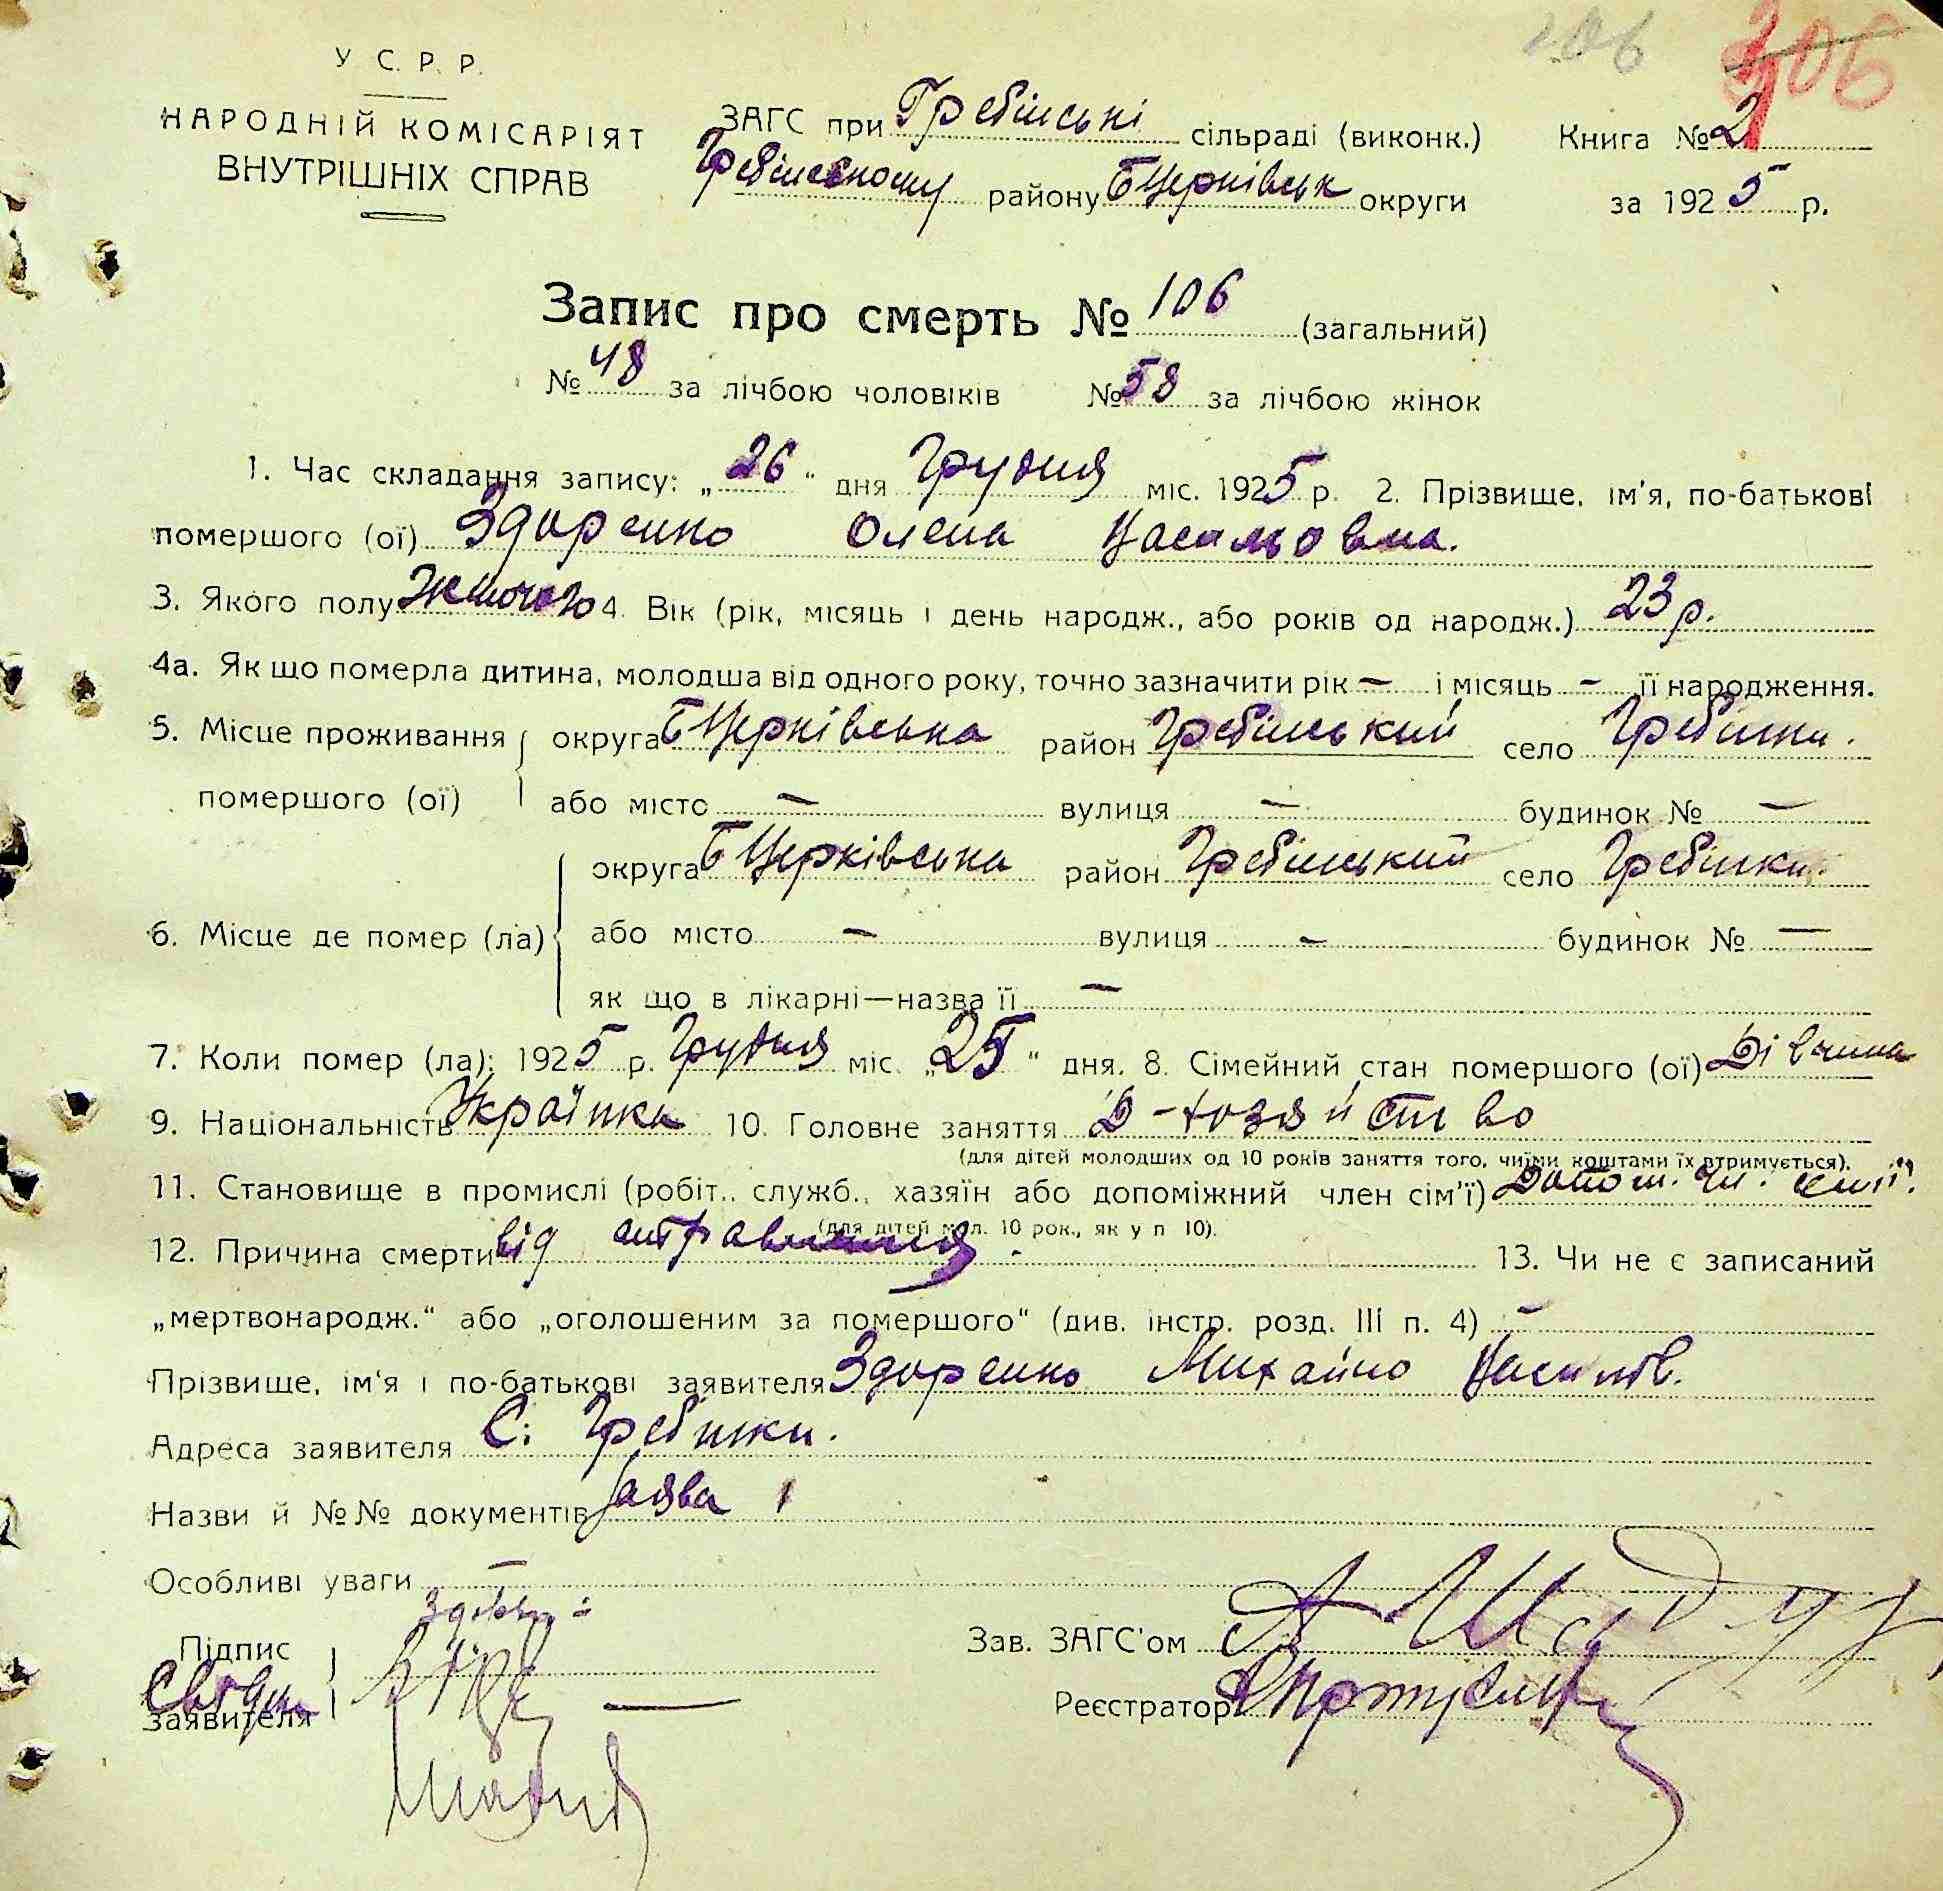 106
306
У С. Р. Р.
НАРОДНІЙ КОМІСАРІЯТ
ВНУТРІШНІХ СПРАВ
ЗАГС при Гребінські сільраді (виконк.) Книга № 2
Гребінському району БЦерківськ округи за 1925 р.
Запис про смерть № 106 (загальний)
№ 48 за лічбою чоловіків № 58 за лічбою жінок
1. Час складання запису: „26" дня Грудня міс. 1925 р. 2. Прізвище, ім'я, по-батькові
помершого (ої) Здоренко Олена Васильовна.
3. Якого полу Жіночого 4. Вік (рік, місяць і день народж., або років од народж.) 23 р.
4а. Як що померла дитина, молодша від одного року, точно зазначити рік — і місяць - її народження.
5. Місце проживання округа БЦерківська район Гребінський село Гребінки.
помершого (ої) або місто — вулиця — будинок № —
округа БЦерківська район Гребінський село Гребінки.
6. Місце де помер (ла) або місто — вулиця — будинок № —
як що в лікарні—назва її —
7. Коли помер (ла): 1925 р. Грудня міс. „25" дня. 8. Сімейний стан помершого (ої) Дівчина
9. Національність Українка 10. Головне заняття Д-хозяйство
(для дітей молодших од 10 років заняття того, чиїми коштами їх втримується).
11. Становище в промислі (робіт., служб., хазяїн або допоміжний член сім'ї) Допом. чл. сім'ї.
(для дітей мол. 10 рок., як у п 10).
12. Причина смерти від отравлення. 13. Чи не є записаний
„мертвонародж." або „оголошеним за помершого" (див. інстр. розд. III п. 4) -
Прізвище, ім'я і по-батькові заявителя Здоренко Михайло Васильов.
Адреса заявителя С. Гребінки.
Назви й №№ документів Заява 1
Особливі уваги —
Підпис
заявителя
Зав. ЗАГС'ом
Реєстратор